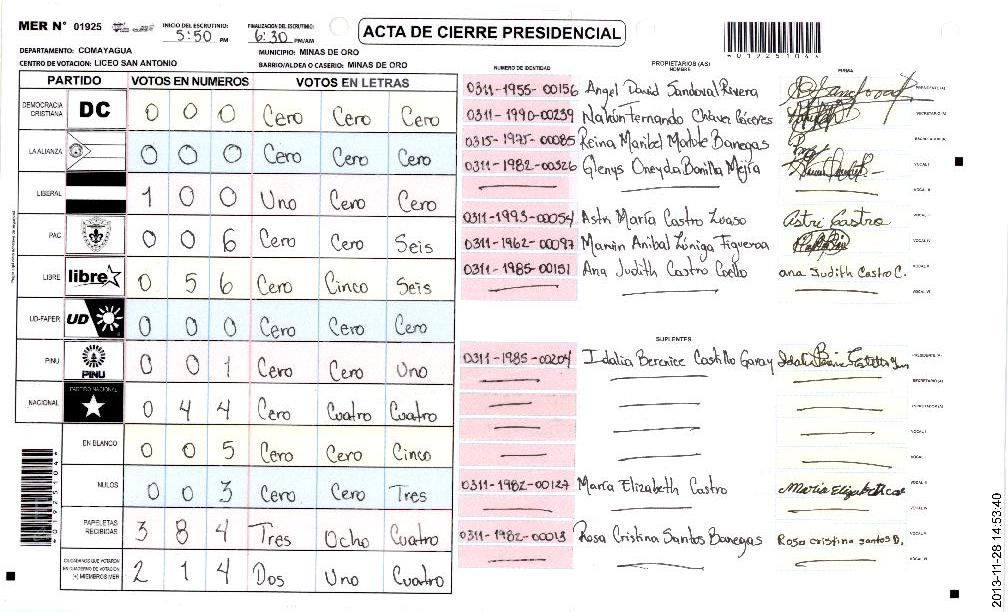 MER N° 01925
INICIO DEL ESCRUTINIO:
5:50 PM
FINALIZACION DEL ESCRUTINIO:
6:30 PM/AM
ACTA DE CIERRE PRESIDENCIAL
DEPARTAMENTO: COMAYAGUA
MUNICIPIO: MINAS DE ORO
CENTRO DE VOTACION: LICEO SAN ANTONIO
BARRIO/ALDEA O CASERIO: MINAS DE ORO
PARTIDO VOTOS EN NUMEROS VOTOS EN LETRAS
DEMOCRACIA CRISTIANA DC 0 0 0 Cero Cero Cero
LA ALIANZA 0 0 0 Cero Cero Cero
LIBERAL 1 0 0 Uno Cero Cero
PAC 0 0 6 Cero Cero Seis
LIBRE libre 0 5 6 Cero Cinco Seis
UD-FAPER UD 0 0 0 Cero Cero Cero
PINU PINU 0 0 1 Cero Cero Uno
NACIONAL PARTIDO NACIONAL 0 4 4 Cero Cuatro Cuatro
EN BLANCO 0 0 5 Cero Cero Cinco
NULOS 0 0 3 Cero Cero Tres
PAPELETAS RECIBIDAS 3 8 4 Tres Ocho Cuatro
CIUDADANOS QUE VOTARON
EN CUADERNO DE VOTACION
(+) MIEMBROS MER 2 1 4 Dos Uno Cuatro
NUMERO DE IDENTIDAD PROPIETARIOS (AS) NOMBRE FIRMA
0311-1955-00156 Angel David Sandoval Rivera PRESIDENTE(A)
0311-1990-00239 Nahún Fernando Cháver Cáceres SECRETARIO(A)
0315-1975-00085 Reina Maribel Banegas
0311-1982-00326 Glenys Oneyda Bonilla Mejía VOCAL I
0311-1993-00054 María Castro Astri Castro
0311-1962-00097 Anibal Zúniga Figueroa
0311-1985-00151 Ana Judith Castro Coello ana Judith Castro C.
SUPLENTES
0311-1985-00204 Idalia Berenice Castillo Garay PRESIDENTE(A)
SECRETARIO(A)
0311-1982-00127 María Elizabeth Castro
0311-1982-00013 Rosa Cristina Santos Banegas Rosa cristina santos B.
2013-11-28 14:53:40